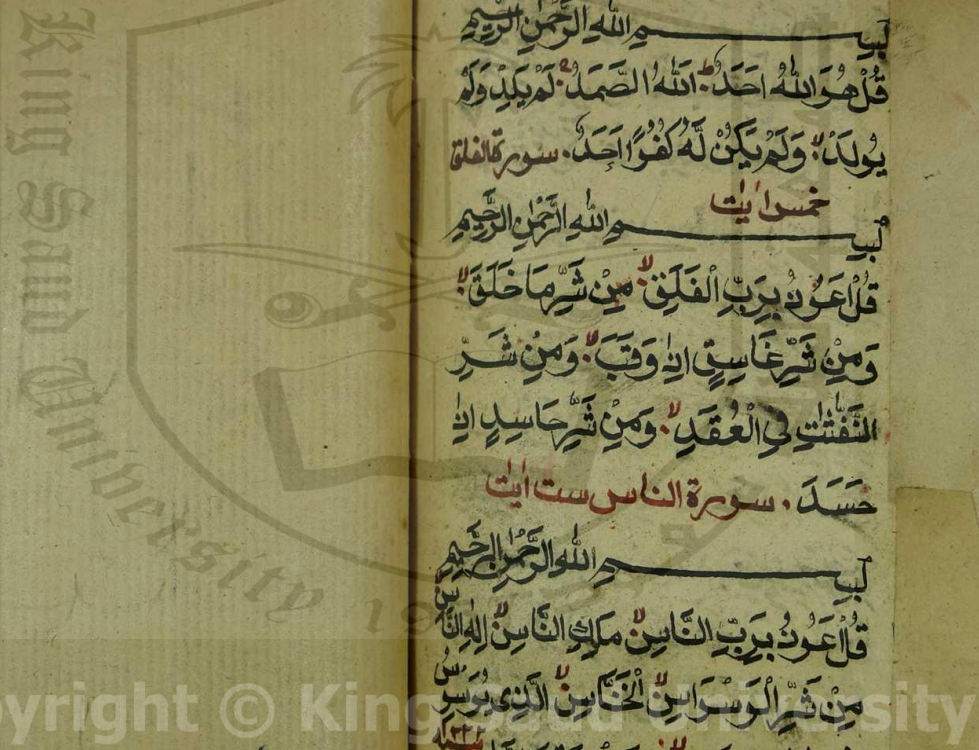 بسم الله الرحمن الرحيم
قُلْ هُوَ اللّٰهُ اَحَدٌ ۚ اَللّٰهُ الصَّمَدُ ۚ لَمْ يَلِدْ وَلَمْ
يُولَدْ ۙ وَلَمْ يَكُنْ لَّهُ كُفُوًا اَحَدٌ . سورة الفلق
خمس اٰيات
بسم الله الرَّحْمٰنِ الرَّحِيمِ
قُلْ اَعُوذُ بِرَبِّ الْفَلَقِ ۙ مِنْ شَرِّ مَا خَلَقَ ۙ
وَمِنْ شَرِّ غَاسِقٍ اِذَا وَقَبَ ۙ وَمِنْ شَرِّ
النَّفّٰثٰتِ فِي الْعُقَدِ ۙ وَمِنْ شَرِّ حَاسِدٍ اِذَا
حَسَدَ . سورة الناس ست اٰيات
بسم الله الرَّحْمٰنِ الرَّحِيمِ
قُلْ اَعُوذُ بِرَبِّ النَّاسِ ۙ مَلِكِ النَّاسِ ۙ اِلٰهِ النَّاسِ
مِنْ شَرِّ الْوَسْوَاسِ ۙ الْخَنَّاسِ ۙ الَّذِي يُوَسْوِسُ
King Saud University 19
pyright © King Saud University